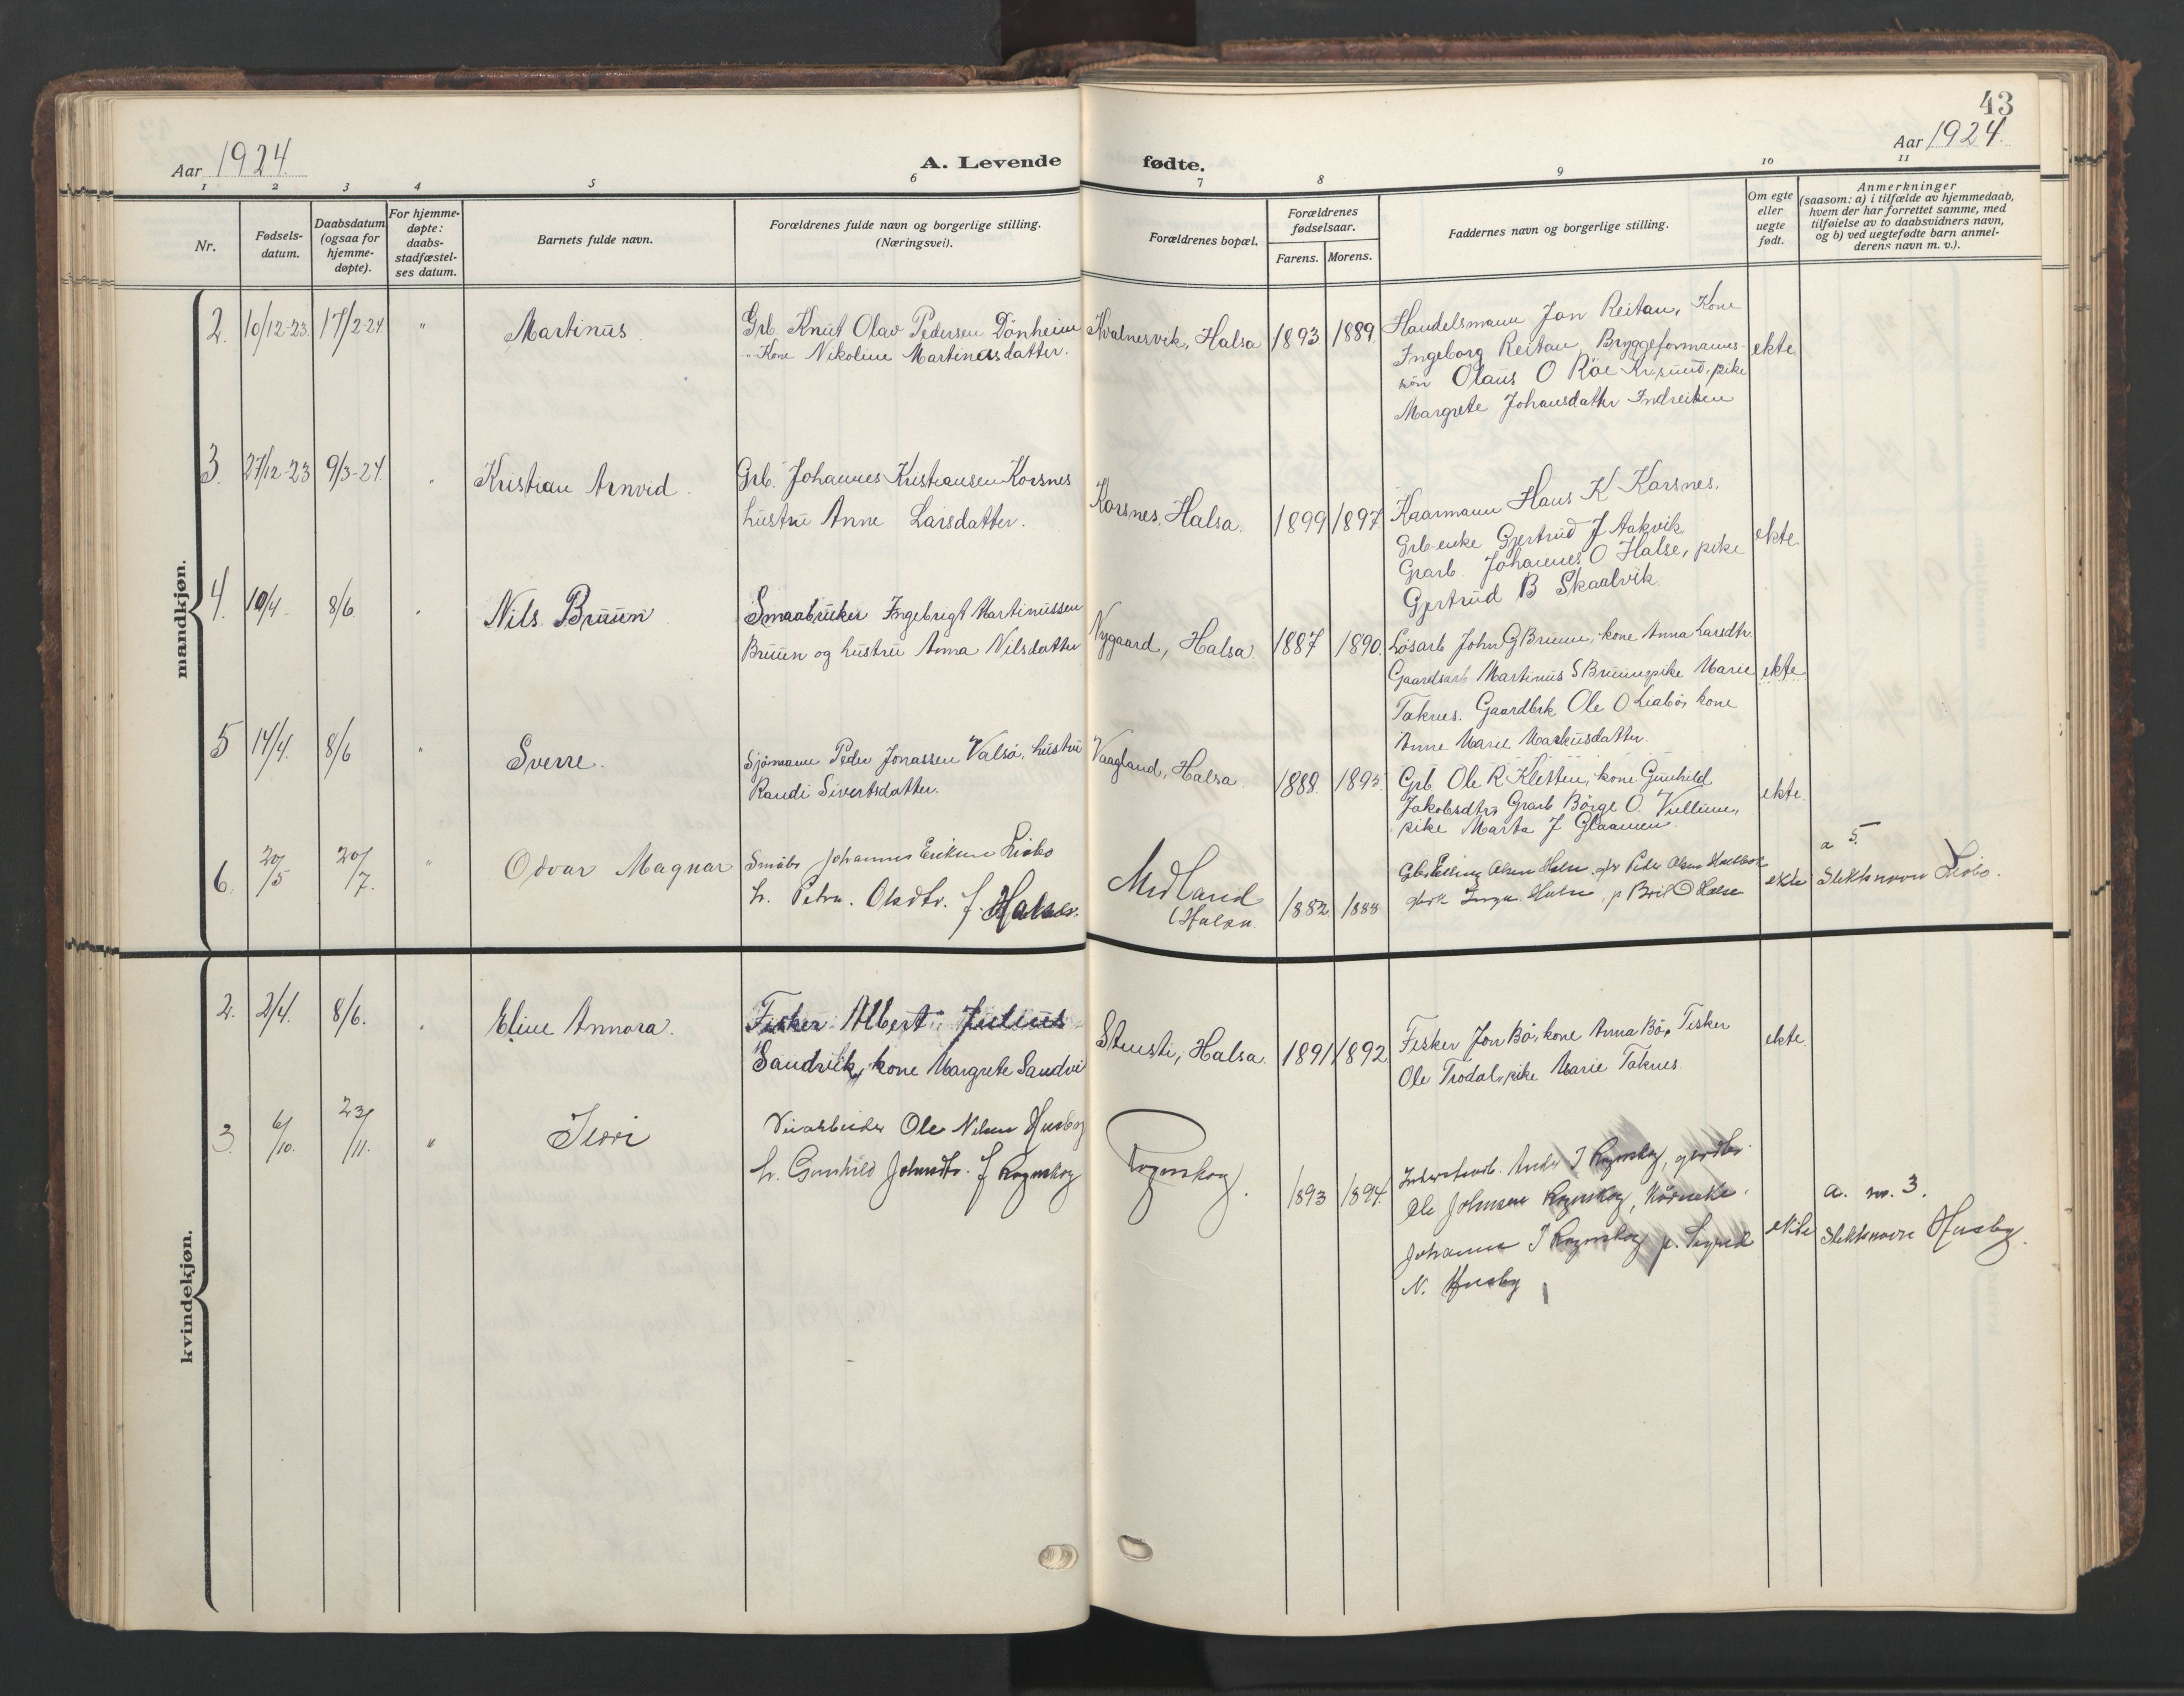 43
Aar 1924.
A. Levende
fødte.
Aar 1924.
1 2 3 4 5 6 7 8 9 10 11
Nr.
Fødsels-
datum.
Daabsdatum
(ogsaa for
hjemme-
døpte).
For hjemme-
døpte:
daabs-
stadfæstel-
ses datum.
Barnets fulde navn.
Forældrenes fulde navn og borgerlige stilling.
(Næringsvei).
Forældrenes bopæl.
Forældrenes
fødselsaar.
Farens. Morens.
Faddernes navn og borgerlige stilling.
Om egte
eller
uegte
født.
Anmerkninger
(saasom: a) i tilfælde av hjemmedaab,
hvem der har forrettet samme, med
tilføielse av to daabsvidners navn,
og b) ved uegtefødte barn anmel-
derens navn m. v.).
mandkjøn.
2. 10/12-23 17/2-24 " Martinus.
Grb. Knut Olav Pedersen Dönheim
" Kone Nikoline Martinusdatter.
Kvalnesvik, Halsa 1893 1889.
Handelsmann Jon Reitan, Kone
Ingeborg Reitan, Bryggeformanns-
sön Olaus O Röe Kr.sund, pike
Margrete Johansdatter Indreiten
ekte.
3. 27/12-23 9/3-24. " Kristian Arnvid.
Grb. Johannes Kristiansen Korsnes
hustru Anne Larsdatter.
Korsnes, Halsa. 1899 1897.
Kaarmann Hans K Karsnes.
Grb.enke Gjertrud J Aakvik
Grarb. Johannes O Halse, pike
Gjertrud B Skaalvik.
ekte
4. 10/4 8/6. " Nils Bruun
Smaabruker Ingebrigt Martinussen
Bruun og hustru Anna Nilsdatter
Nygaard, Halsa. 1887 1890.
Løsarb John G Bruun, kone Anna Larsdtr.
Gaardsarb Martinus S Bruun, pike Marie
Taknes. Gaardbrk Ole O Liabö, kone
Anne Marie Markusdatter.
ekte
5 14/4. 8/6 " Sverre.
Sjömann Peder Jonassen Valsö, hustru
Randi Sivertsdatter.
Vaagland, Halsa. 1888. 1895.
Grb Ole R Kletten, kone Gunhild
Jakobsdtr, Grarb Börge O. Vullum,
pike Marta J Glaamen.
ekte.
6. 20/5 20/7. " Odvar Magnar
Småbr Johannes Eriksen Liabø
h. Petra. Olsdtr. f. Halse.
Midland
(Halsa. 1882 1888
Olsen Halse Peder Olsen
Inga Halse, p O Halse
ekte
a 5.
Slektsnavn Liabø.
kvindekjøn.
2. 2/4. 8/6. " Eline Annora.
Fisker Albert Julius
Sandvik, kone Margrete Sandvi
Stensti, Halsa. 1891 1892
Fisker Jon Bö, kone Anna Bö, Fisker
Ole Trodal, pike Marie Taknes.
ekte.
3. 6/10. 23/11. "
Veiarbeider Ole Nilsen Husby
h. Gunhild Johnsdtr. f Rognskog
Rognskog. 1893 1894.
Anders J Rognskog, gårdbr
Ole Johnsen Rognskog,
Johanna J Rognskog p. Sigrid
N. Husby
ekte
a. nr. 3.
Slektsnavn Husby.